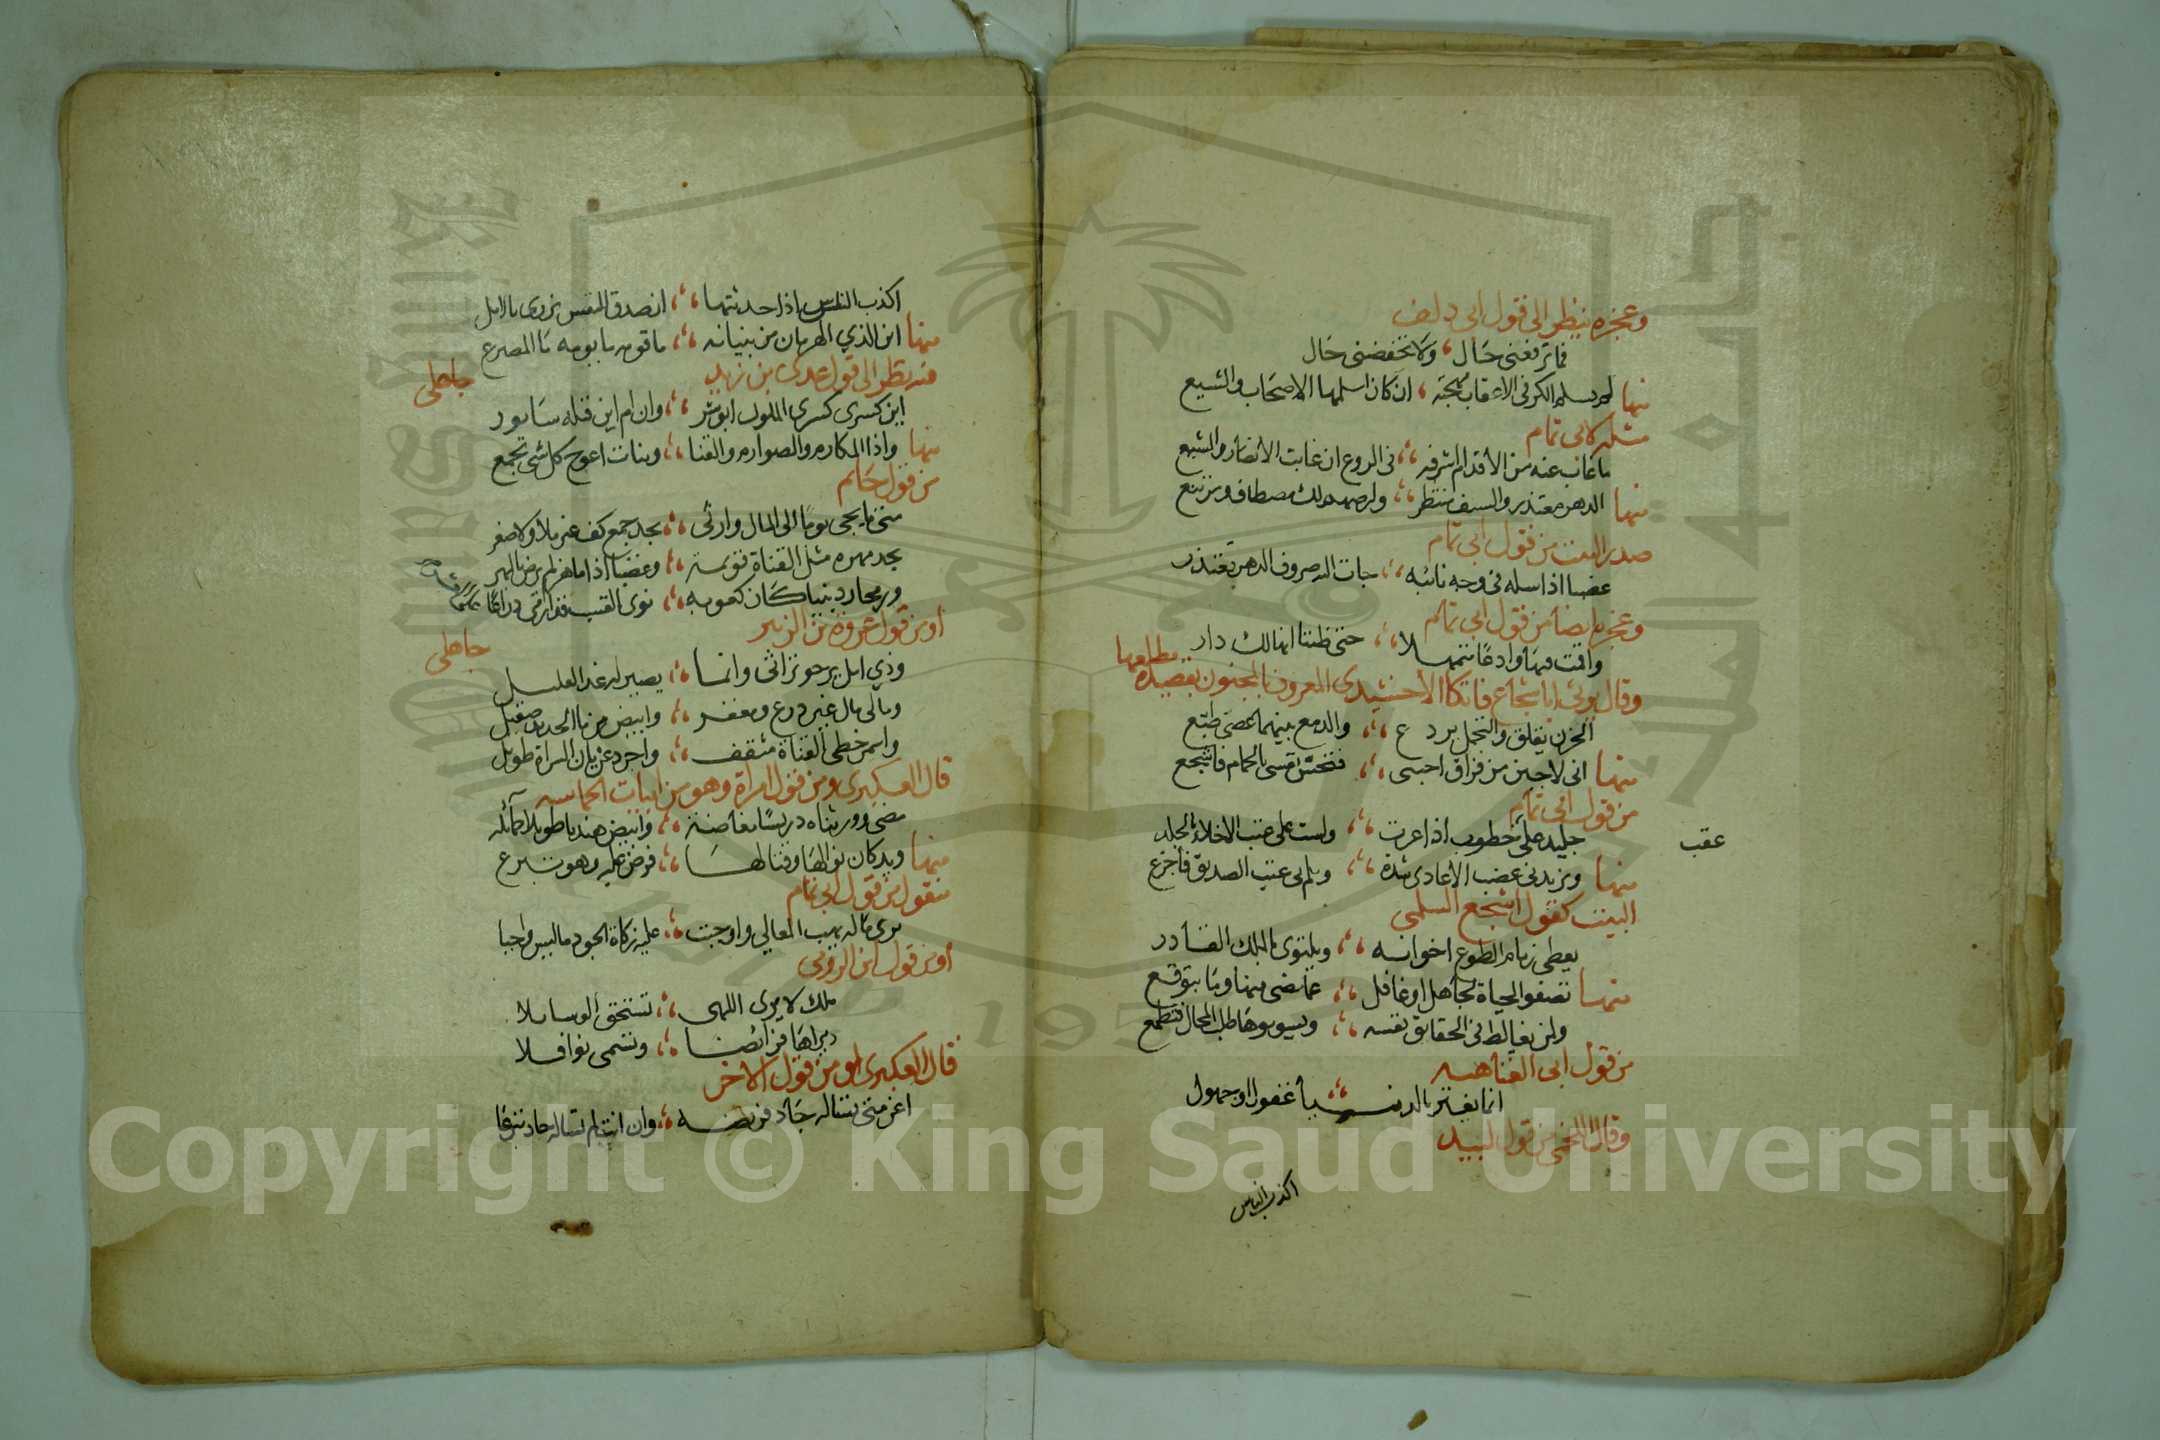 وعجزه ينظر الى قول ابى دلف
فما ترفعنى حَال ولا تخفضنى حَال
منها لم يسلم الكر فى الاعقاب مهجته ان كان اسلمها الاصحاب والشيع
مثله لابى تمام
ما غاب عنه من الأقدام اشرفه فى الروع ان غابت الأنصار والشيع
منها الدهر معتذر والسيف منتظر وارضهم لك مصطاف ومرتبع
صدر البيت من قول ابى تمام
عضبا اذا سله فى وجه نائبه جات اليه صروف الدهر تعتذر
وعجزه ايضا من قول ابى تمام
واقمت فيها وادعا متمهلا حتى ظننا انها لك دار
وقال يرثى ابا شجاع فاتكا الاخشيدى المعروف بالمجنون بقصيدة مطلعها
الحزن يقلق والتجمل يردع والدمع بينهما عصى طيع
منها انى لاجبن من فراق احبتى فتحس نفسى بالحمام فاشجع
من قول ابى تمام
جليد على خطوب اذا عرت ولست على عتب الاخلاء بالجلد
عقب
منها ويزيدنى غضب الأعادى شدة ويلم بى عتب الصديق فاجزع
البيت كقول اشجع السلمى
يعطى زمام الطوع اخوانه ويلتوى بالملك القادر
منها تصفو الحياة لجاهل او غافل عما مضى منها وما يتوقع
ولمن يغالط فى الحقايق نفسه ويسومها طلب المحال فتطمع
من قول ابى العتاهيه
انما يغتر بالدنيا غفول او جهول
وقال اللخمى من قول لبيد
اكذب النفس
اكذب النفس اذا حدثتها ان صدق النفس يزرى بالامل
منها اين الذي الهرمان من بنيانه ما قومه ما يومه ما المصرع
فيه نظر الى قول عدى بن زيد جاهلى
اين كسرى كسرى الملوك ابوشر وان ام اين قبله سابور
منها واذا المكارم والصوارم والقنا وبنات اعوج كل شى تجمع
من قول حاتم
متى ما يجى يوما الى المال وارثى يجد جمع كف غير ملا ولا صفر
يجد مهره مثل القناة قويمة وعضبا اذا ما هز لم يرض بالهبر
ورمحا ردينيا كان كعوبه نوى القسب قد ارمى ذراعا
أو من قول عروة بن الزبير جاهلى
وذي امل يرجو تراثى وانما يصير له غدا لقليل
ومالى مال غير درع ومغفر وابيض من ما الحديد صقيل
واسمر خطى القناة مثقف واجرد عريان السراة طويل
قال العكبرى ومن قول امراة وهو من ابيات الحماسه
مضى وورثناه دريس مفاضة وابيض هنديا طويلا حمائله
منها ويد كان نوالها وقتالها فرض عليه وهو تبرع
منقول من قول ابى تمام
يرى ماله نهب المعالي واوجبت عليه زكاة الجود ما ليس واجبا
أو من قول ابن الرومى
ملك لا يرى اللهى تستحق الوسايلا
ويراها فرائضا وتسمى نوافلا
قال العكبرى او من قول الاخر
اغر متى تساله جاد فريضه وان انت لم تساله جاد تبرعا